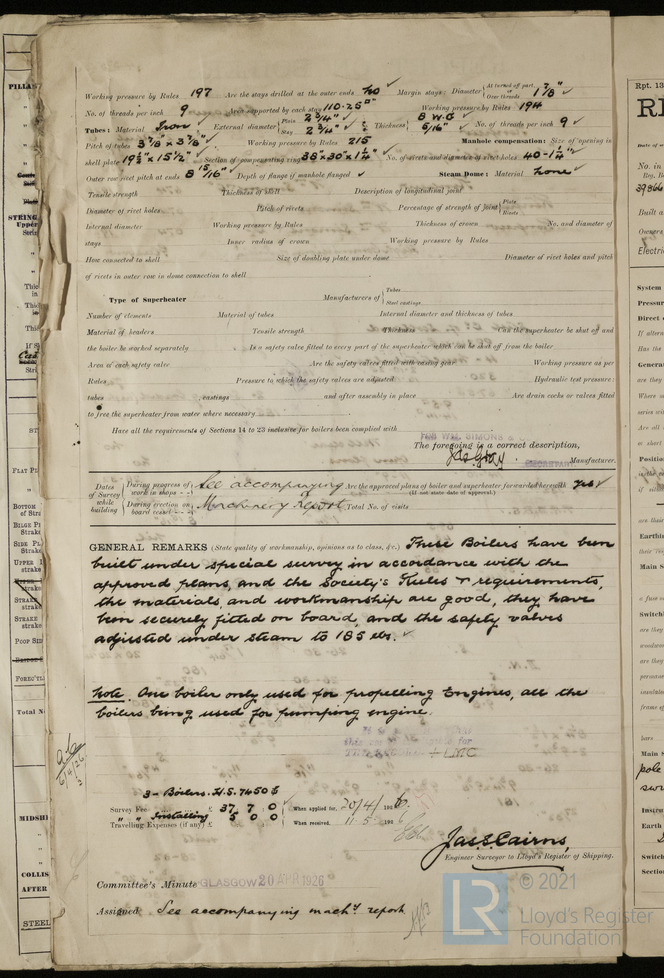 Working pressure by Rules 197 Are the stays drilled at the outer ends No Margin stays: Diameter { At turned off part, Over threads 1 7/8"
No. of threads per inch 9 Area supported by each stay 110.25 Working pressure by Rules 194
Tubes: Material Iron External diameter { Plain 2 3/4" Stay 2 3/4" Thickness { 8 W.G 5/16" No. of threads per inch 9
Pitch of tubes 3 7/8" x 3 7/8" Working pressure by Rules 215 Manhole compensation: Size of opening in
shell plate 19 1/2" x 15 1/2" Section of compensating ring 38" x 30" x 1 1/4" No. of rivets and diameter of rivet holes 40 - 1 1/4"
Outer row rivet pitch at ends 8 15/16" Depth of flange if manhole flanged Steam Dome: Material none
Tensile strength Thickness of shell Description of longitudinal joint
Diameter of rivet holes Pitch of rivets Percentage of strength of joint { Plate Rivets
Internal diameter Working pressure by Rules Thickness of crown No. and diameter of
stays Inner radius of crown Working pressure by Rules
How connected to shell Size of doubling plate under dome Diameter of rivet holes and pitch
of rivets in outer row in dome connection to shell
Type of Superheater Manufacturers of { Tubes Steel castings
Number of elements Material of tubes Internal diameter and thickness of tubes
Material of headers Tensile strength Thickness Can the superheater be shut off and
the boiler be worked separately Is a safety valve fitted to every part of the superheater which can be shut off from the boiler
Area of each safety valve Are the safety valves fitted with easing gear Working pressure as per
Rules Pressure to which the safety valves are adjusted Hydraulic test pressure:
tubes castings and after assembly in place Are drain cocks or valves fitted
to free the superheater from water where necessary
Have all the requirements of Sections 14 to 23 inclusive for boilers been complied with
FOR WM. SIMONS &
The foregoing is a correct description,
SECRETARY Manufacturer.
Dates of Survey while building { During progress of work in shops - - See accompanying Are the approved plans of boiler and superheater forwarded herewith yes
(If not state date of approval.)
During erection on board vessel - - - Machinery Report. Total No. of visits
GENERAL REMARKS (State quality of workmanship, opinions as to class, &c.) These Boilers have been
built under special survey in accordance with the
approved plans, and the Society's Rules & requirements,
the materials, and workmanship are good, they have
been securely fitted on board, and the safety valves
adjusted under steam to 185 lbs.
Note. One boiler only used for propelling Engines, all the
boilers being used for pumping engine.
+ LMC
3 - Boilers. H.S. 7450
Survey Fee £ 37 7 0 When applied for, 20/4/1926
" " Installing 5 0 0
Travelling Expenses (if any) £ When received, 11.5.192
Jas. S. Cairns,
Engineer Surveyor to Lloyd's Register of Shipping.
Committee's Minute GLASGOW 20 APR 1926
Assigned See accompanying machy report
LR © 2021
Lloyd's Register
Foundation
Rpt. 13